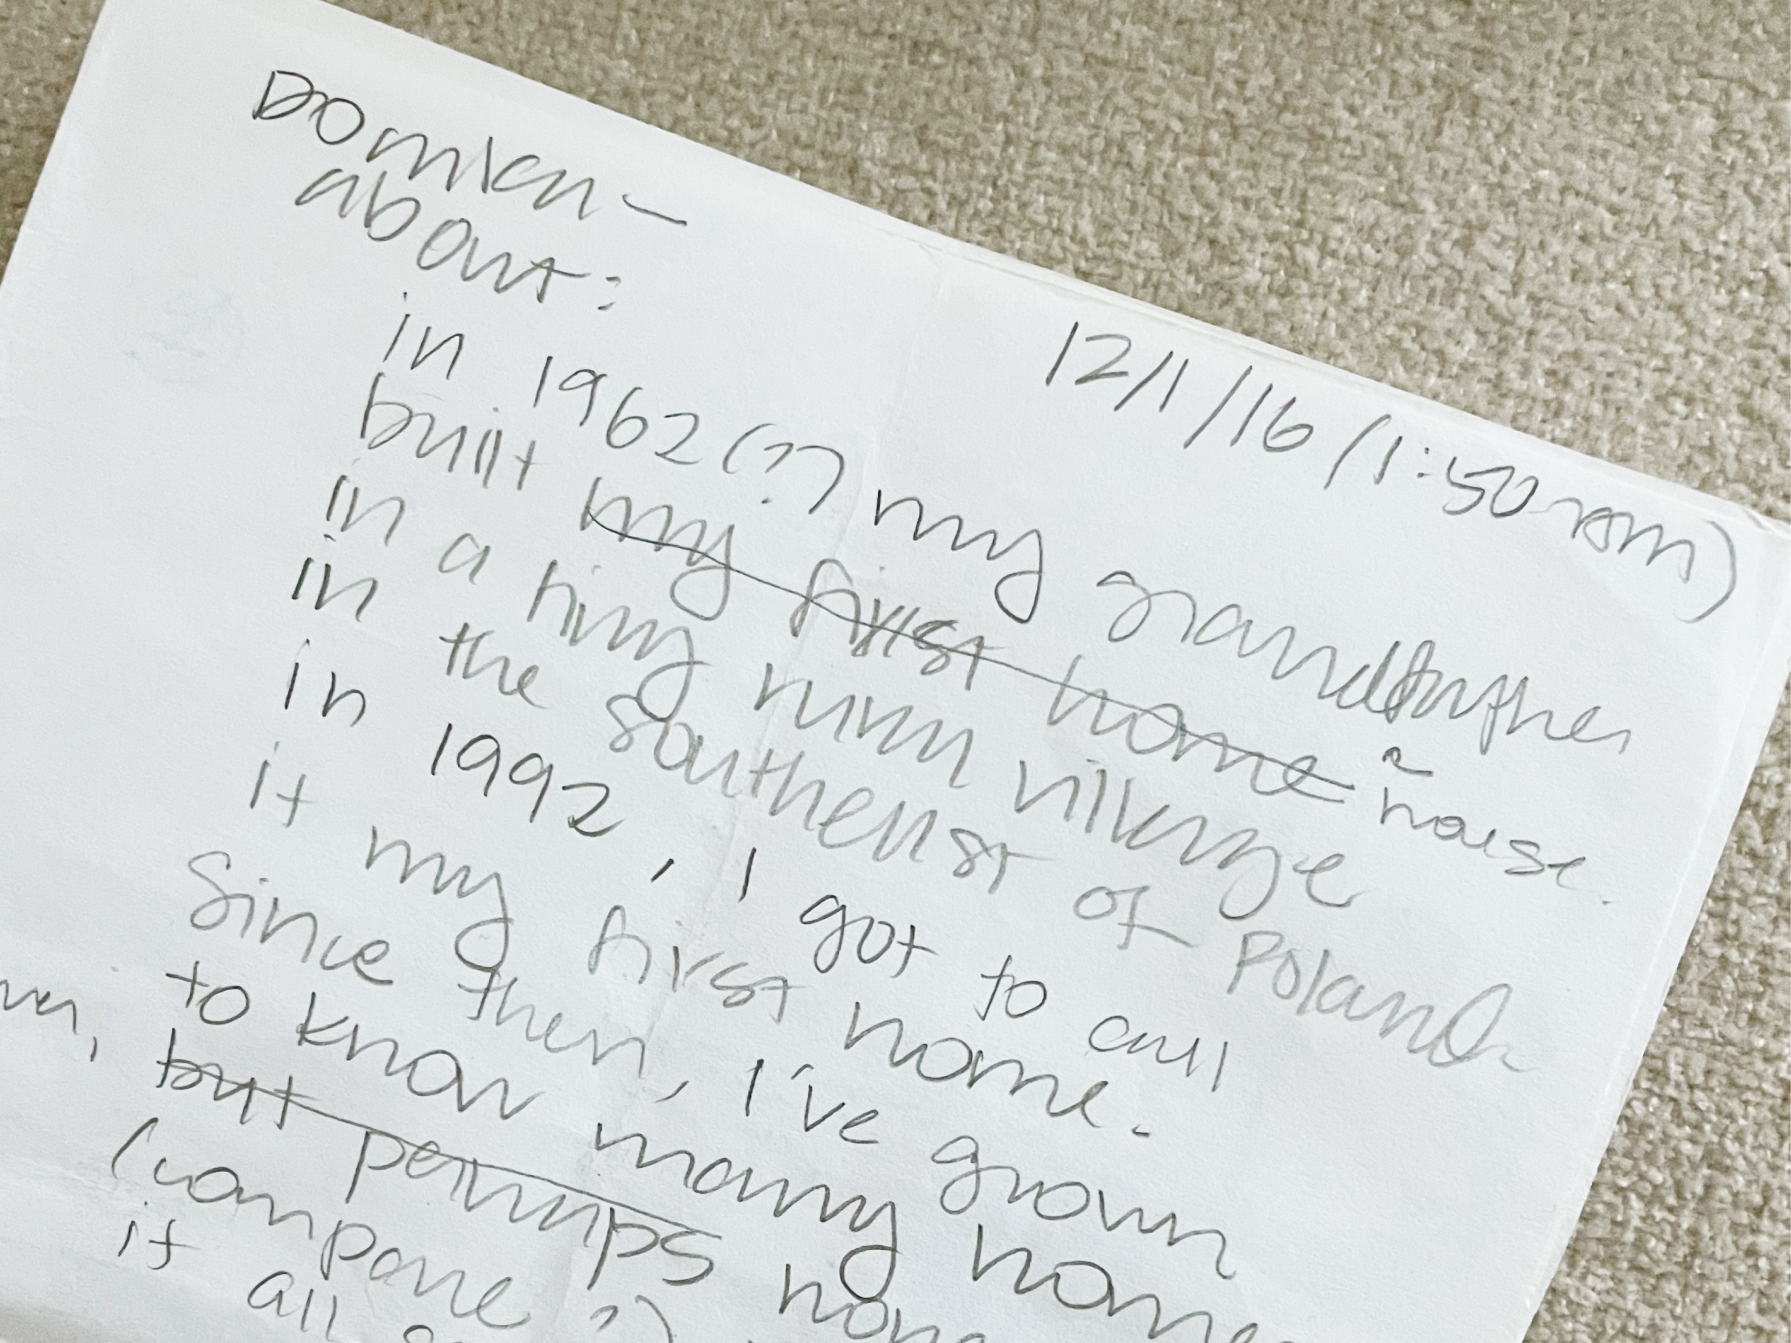 Domien -
about:
12/1/16 (1:50 am)
in 1962 (??) my grandfather
built my first home a house.
in a tiny rural village
in the southeast of Poland
in 1992, I got to call
it my first home.
Since then, I've grown
to know many
but perhaps
(compare ?)
it all